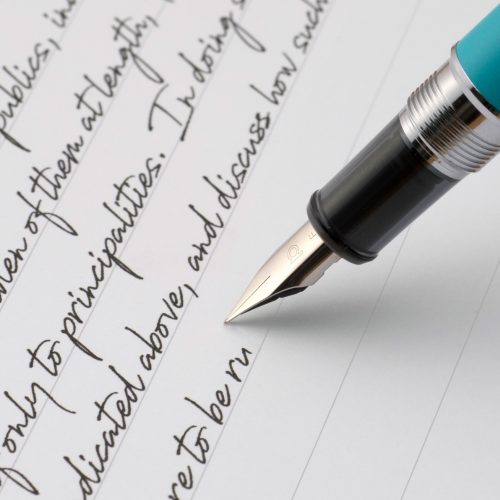 publics, in
of them at length,
only to principalities. In doing s
dicated above, and discuss how such
re to be ru
F